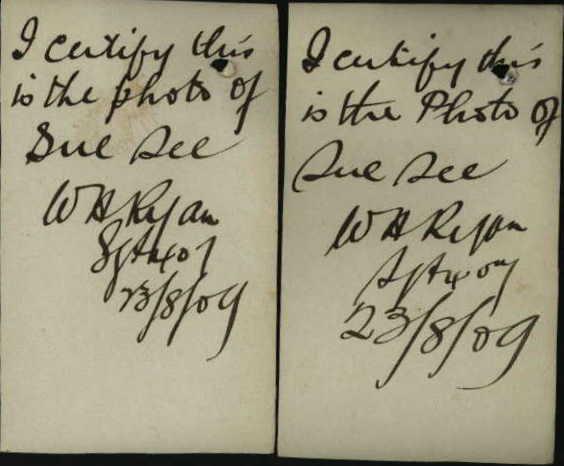 I certify this
is the photo of
Sue See
W H Ryan
Sgt 4407
23/8/09
I certify this
is the Photo of
Sue See
W H Ryan
23/8/09